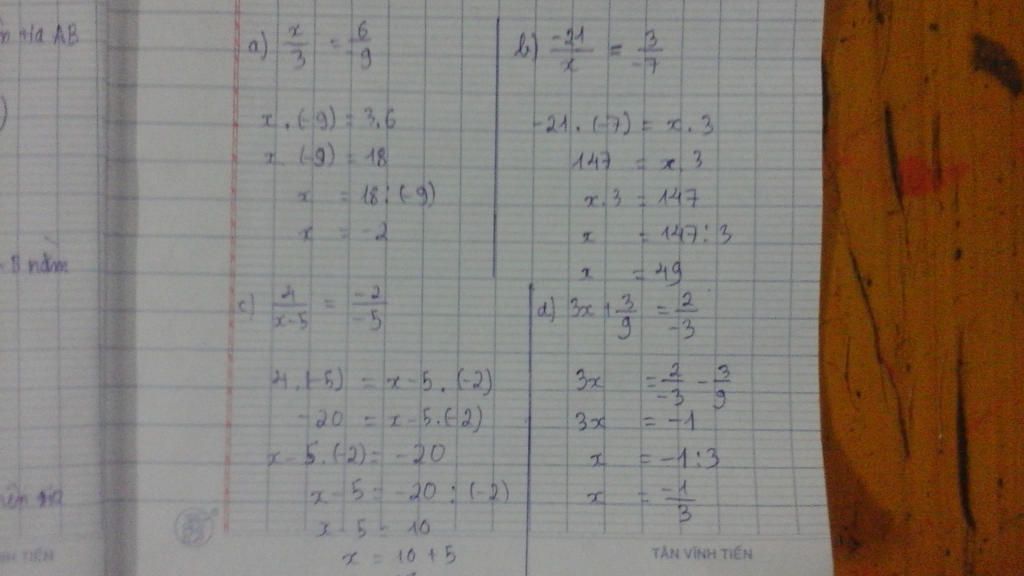 a) x/3 = 6/-9
x . (-9) = 3.6
x . (-9) = 18
x = 18 : (-9)
x = -2
b) -21/x = 3/-7
-21 . (-7) = x . 3
147 = x . 3
x . 3 = 147
x = 147 : 3
x = 49
c) 4/x-5 = -2/-5
4 . (-5) = x - 5 . (-2)
-20 = x - 5 . (-2)
x - 5 . (-2) = -20
x - 5 = -20 : (-2)
x - 5 = 10
x = 10 + 5
d) 3x + 3/9 = 2/-3
3x = 2/-3 - 3/9
3x = -1
x = -1 : 3
x = -1/3
AB
B nằm
TIẾN
TÂN VĨNH TIẾN